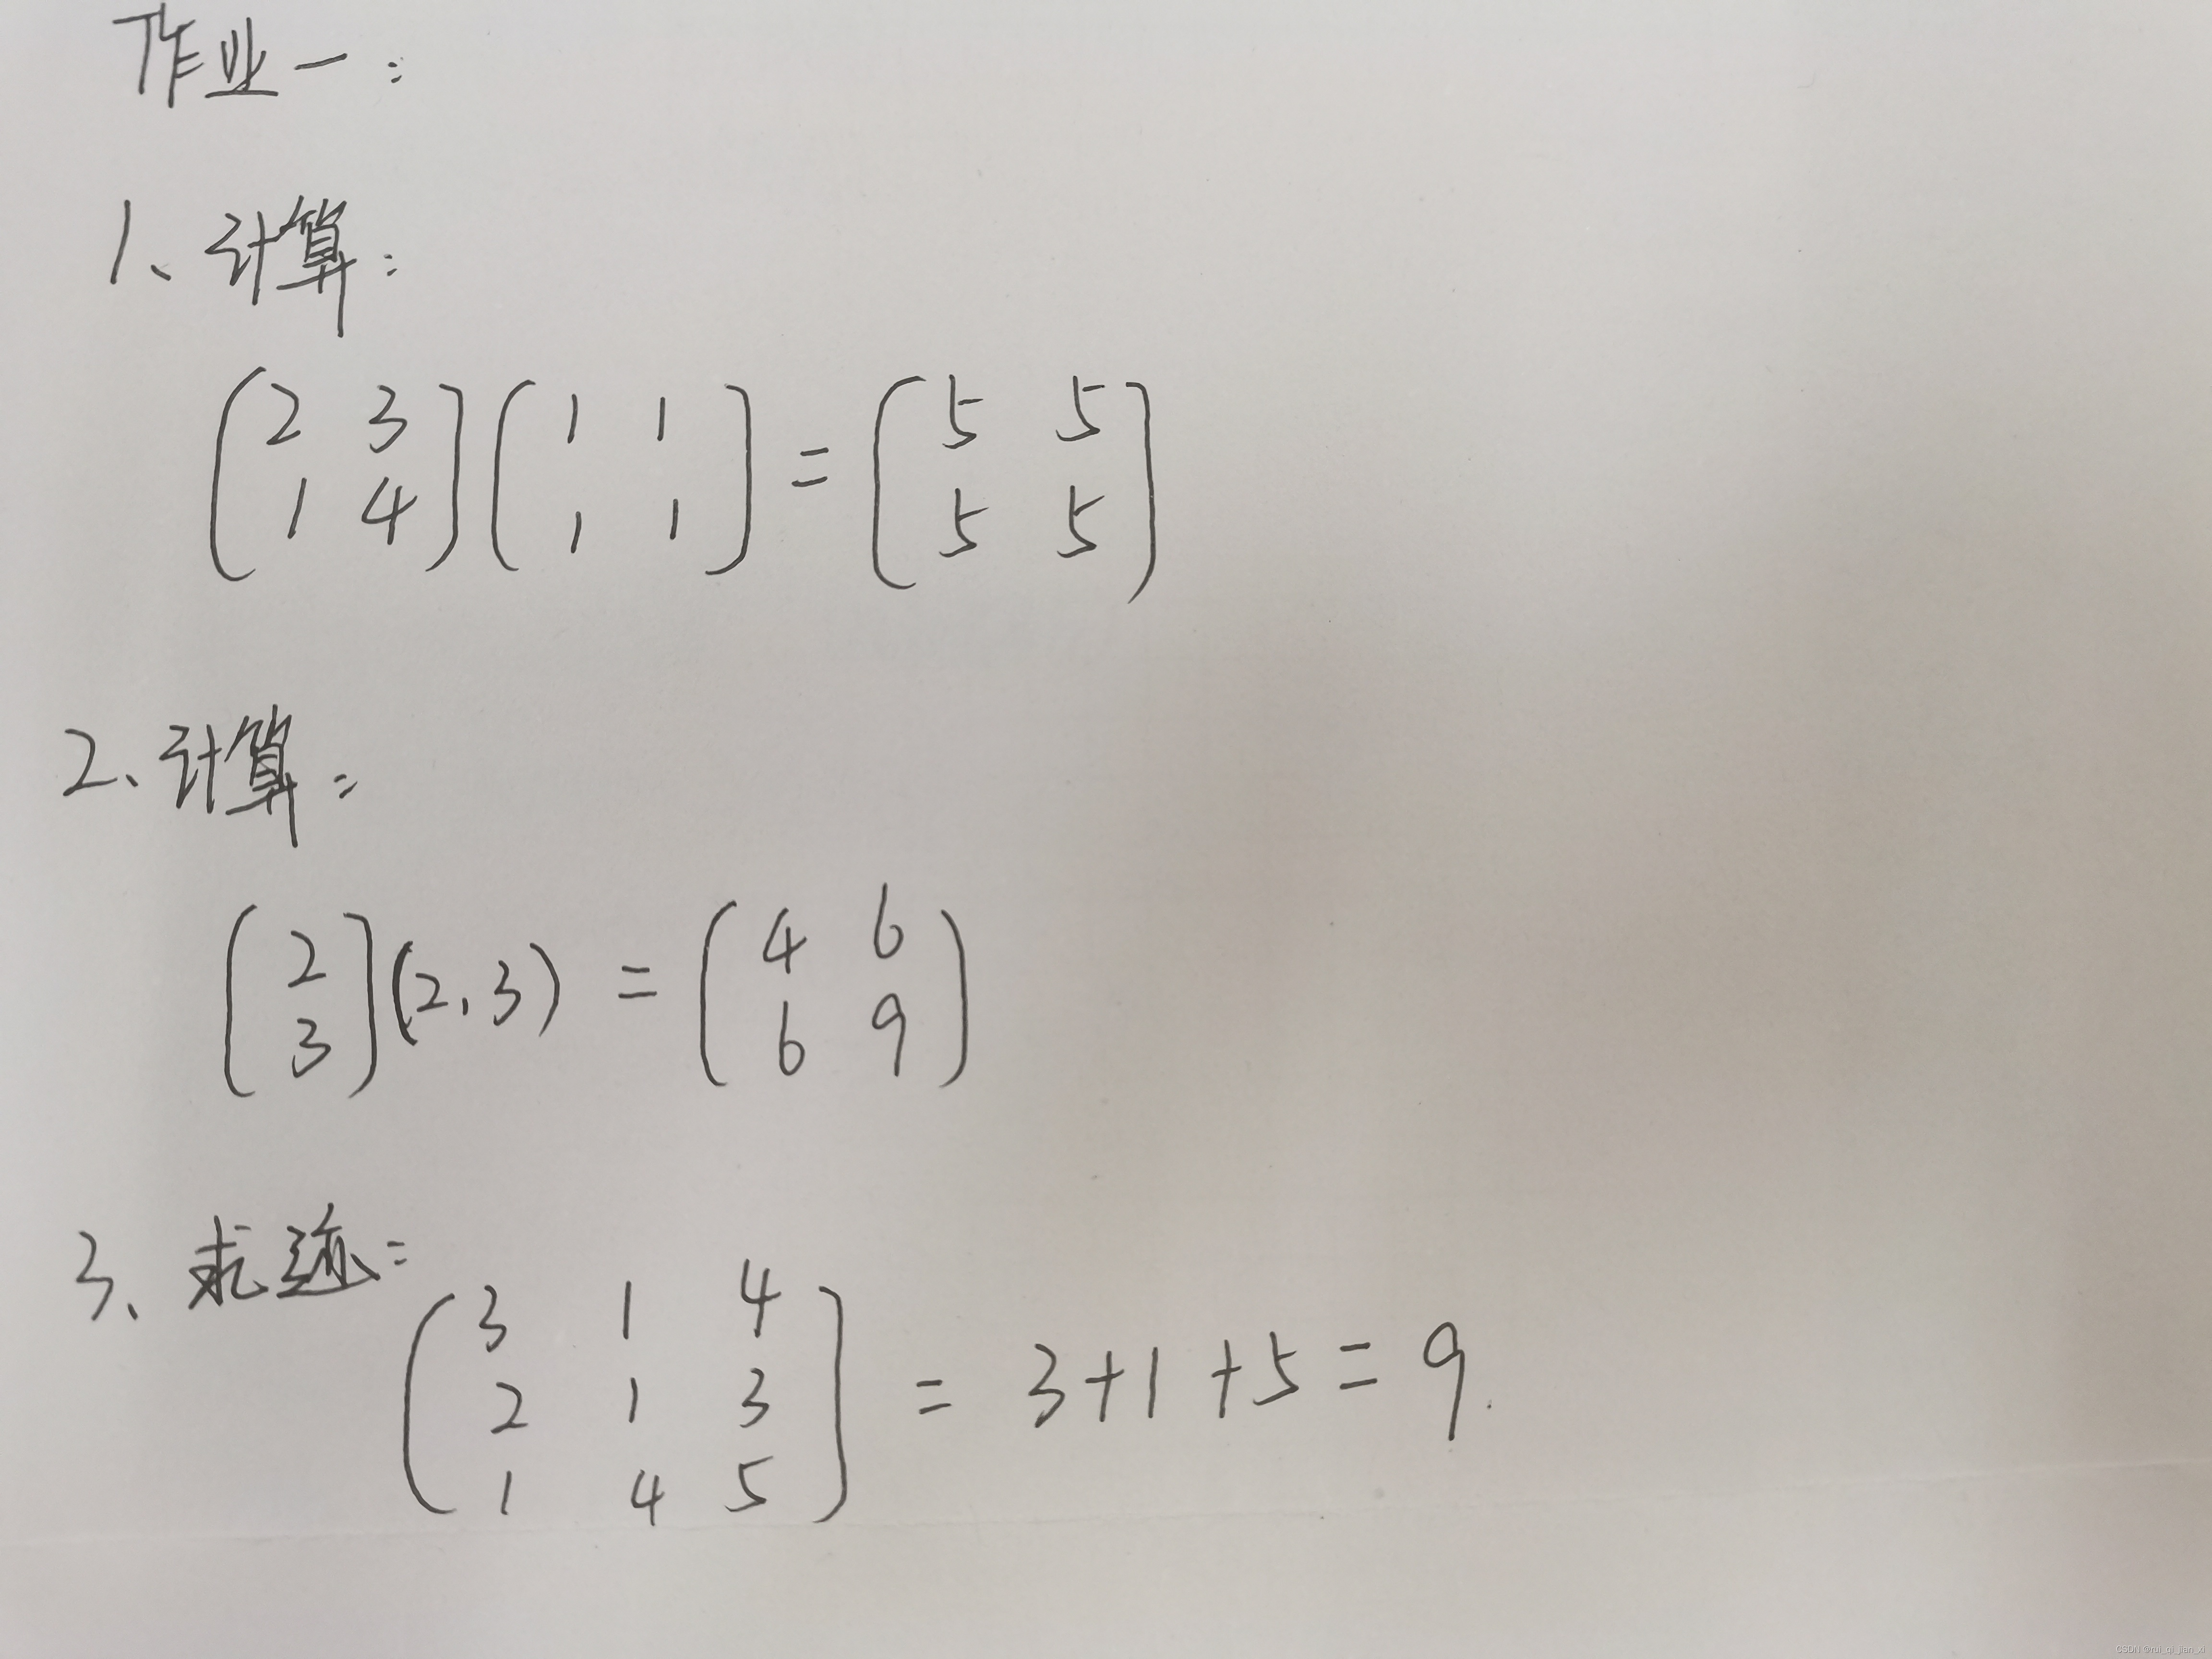 作业一：
1、计算：
(2 3
1 4)(1 1
1 1) = (5 5
5 5)
2、计算：
(2
3)(2,3) = (4 6
6 9)
3、求迹：
(3 1 4
2 1 3
1 4 5) = 3+1+5=9.
CSDN @rui_qi_jian_xi